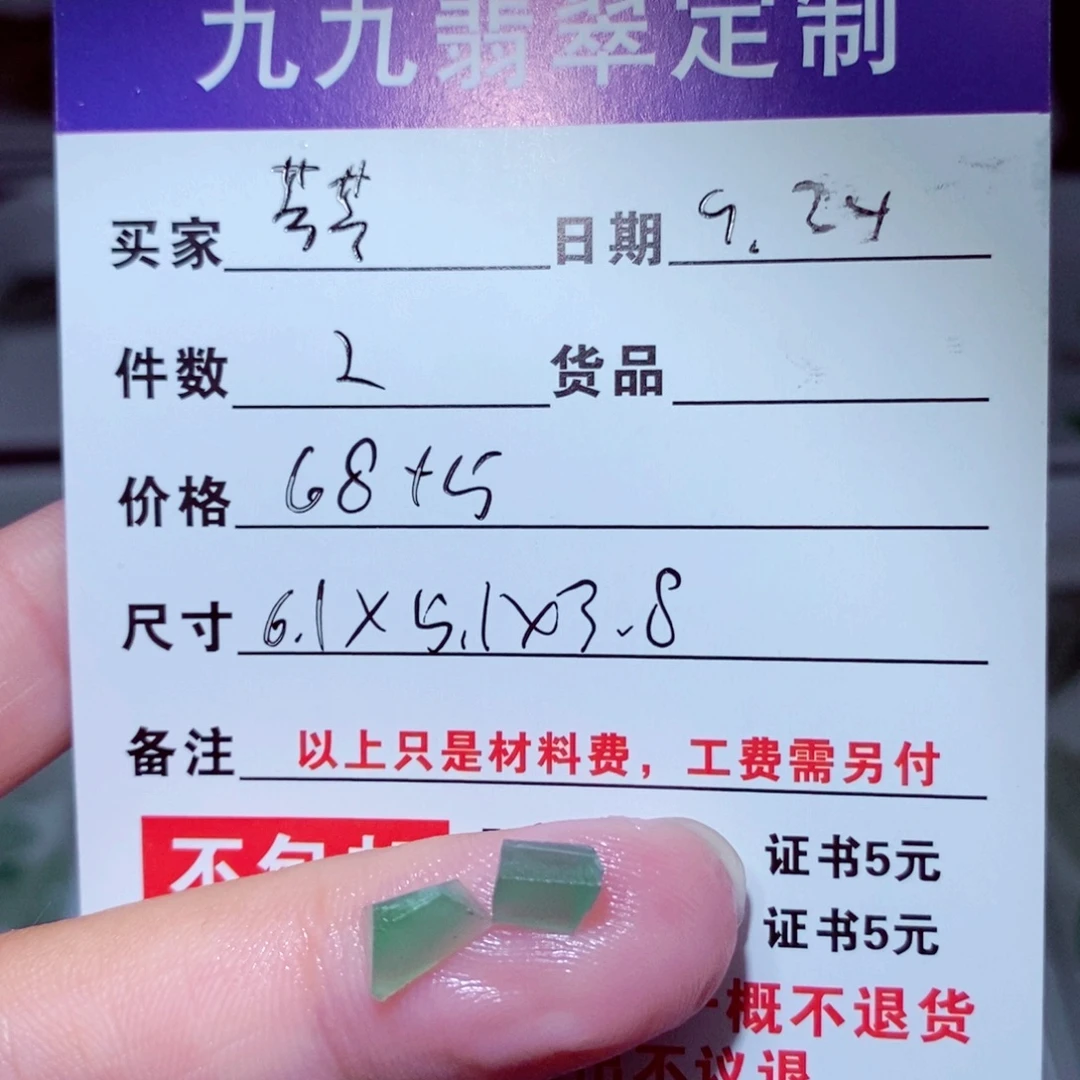 九九翡翠定制
买家 日期 9.24
件数 2 货品
价格 68+5
尺寸 6.1×5.1×3.8
备注 以上只是材料费，工费需另付
证书5元
证书5元
概不退货
不议退